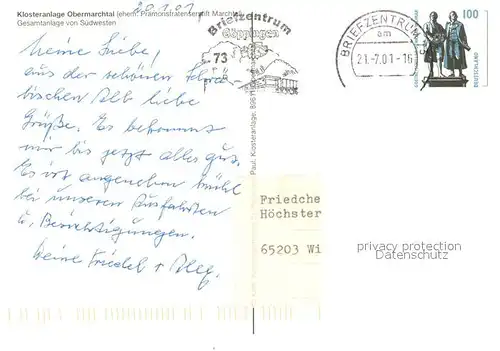 Klosteranlage Obermarchtal (ehem. Prämonstratenserstift Marchtal)
Gesamtanlage von Südwesten
20.7.01
Meine Liebe,
aus der schönen Schwä-
bischen Alb liebe
Grüße. Es bekommt
mir bis jetzt alles gut.
Es ist angenehm kühl
bei unseren Ausfahrten
u. Besichtigungen.
Deine Friedel +
Briefzentrum
Göppingen
73
BRIEFZENTRUM
am
21.-7.01-16
100
DEUTSCHLAND
Paul. Klosteranlage,
Friedche
Höchster
65203 Wi
privacy protection
Datenschutz